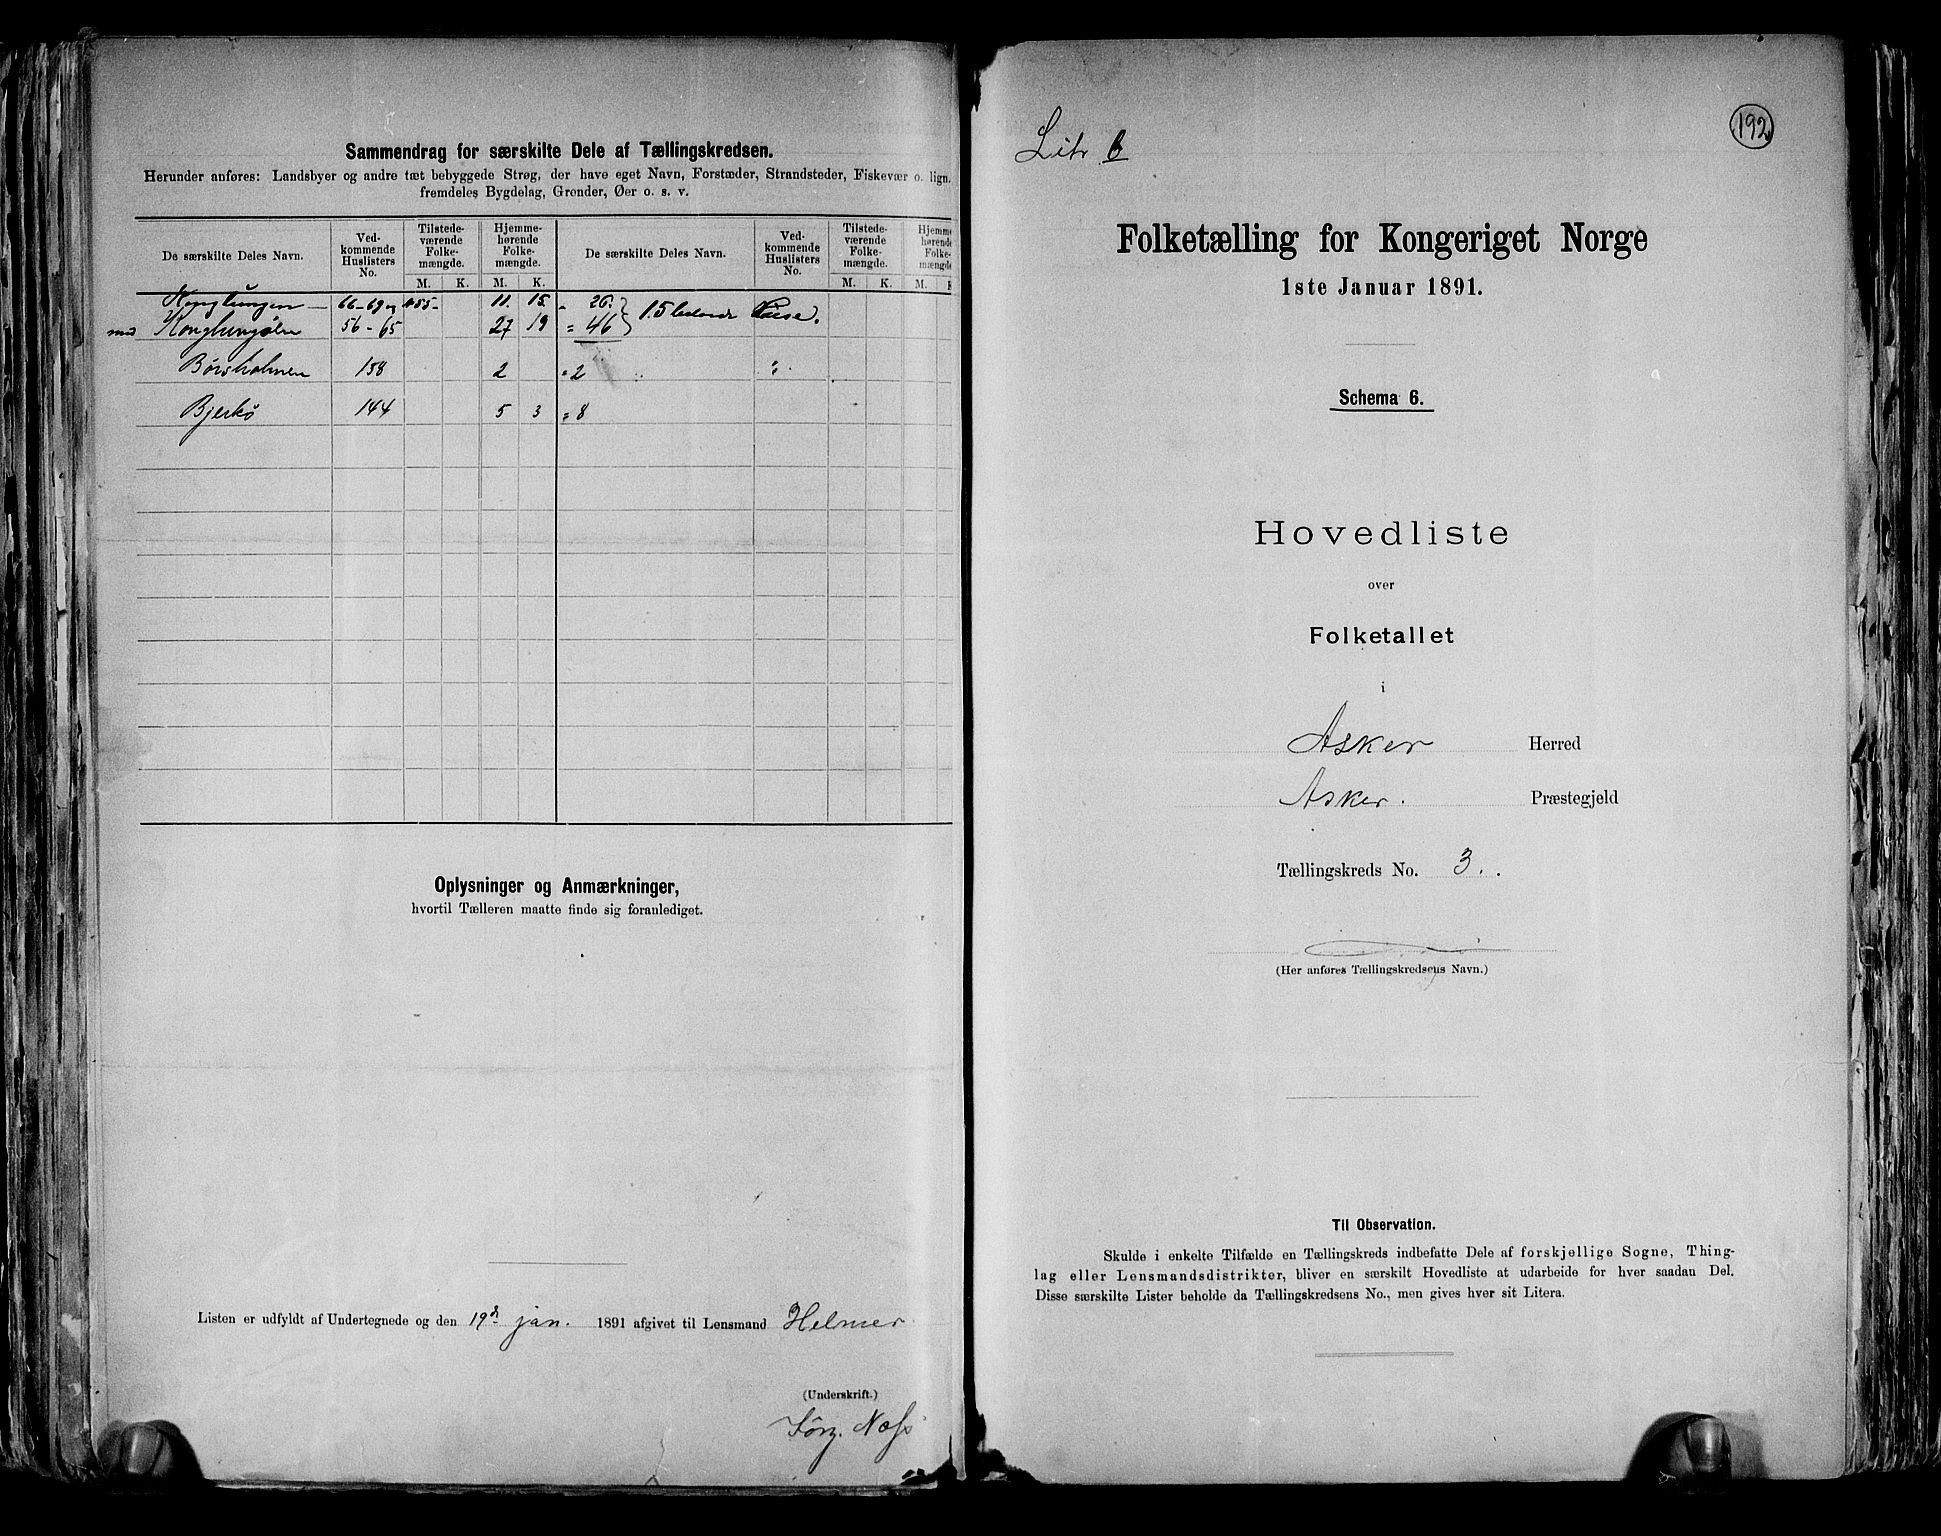 Sammendrag for særskilte Dele af Tællingskredsen.
Herunder anføres: Landsbyer og andre tæt bebyggede Strøg, der have eget Navn, Forstæder, Strandsteder, Fiskevær o. lign.
fremdeles Bygdelag, Grender, Øer o. s. v.
De særskilte Deles Navn. Ved-kommende Huslisters No. Tilstede-værende Folke-mængde. Hjemme-hørende Folke-mængde. De særskilte Deles Navn. Ved-kommende Huslisters No. Tilstede-værende Folke-mængde. Hjemme hørende Folke- mængde
M. K. M. K. M. K. M.
Konglungen 66-69 og 155- 11. 15. = 26.
med Konglungøen 56-65 27 19 = 46 15 beboede Huse.
Børsholmen 158 2 = 2
Bjerkö 144 5 3 = 8
Oplysninger og Anmærkninger,
hvortil Tælleren maatte finde sig foranlediget.
Listen er udfyldt af Undertegnede og den 19d jan. 1891 afgivet til Lensmand Helmer
(Underskrift.)
Jörg. Næss
192
Litr b
Folketælling for Kongeriget Norge
1ste Januar 1891.
Schema 6.
Hovedliste
over
Folketallet
i
Asker Herred
Asker. Præstegjeld
Tællingskreds No. 3.
(Her anføres Tællingskredsens Navn.)
Til Observation.
Skulde i enkelte Tilfælde en Tællingskreds indbefatte Dele af forskjellige Sogne, Thing-
lag eller Lensmandsdistrikter, bliver en særskilt Hovedliste at udarbeide for hver saadan Del.
Disse særskilte Lister beholde da Tællingskredsens No., men gives hver sit Litera.